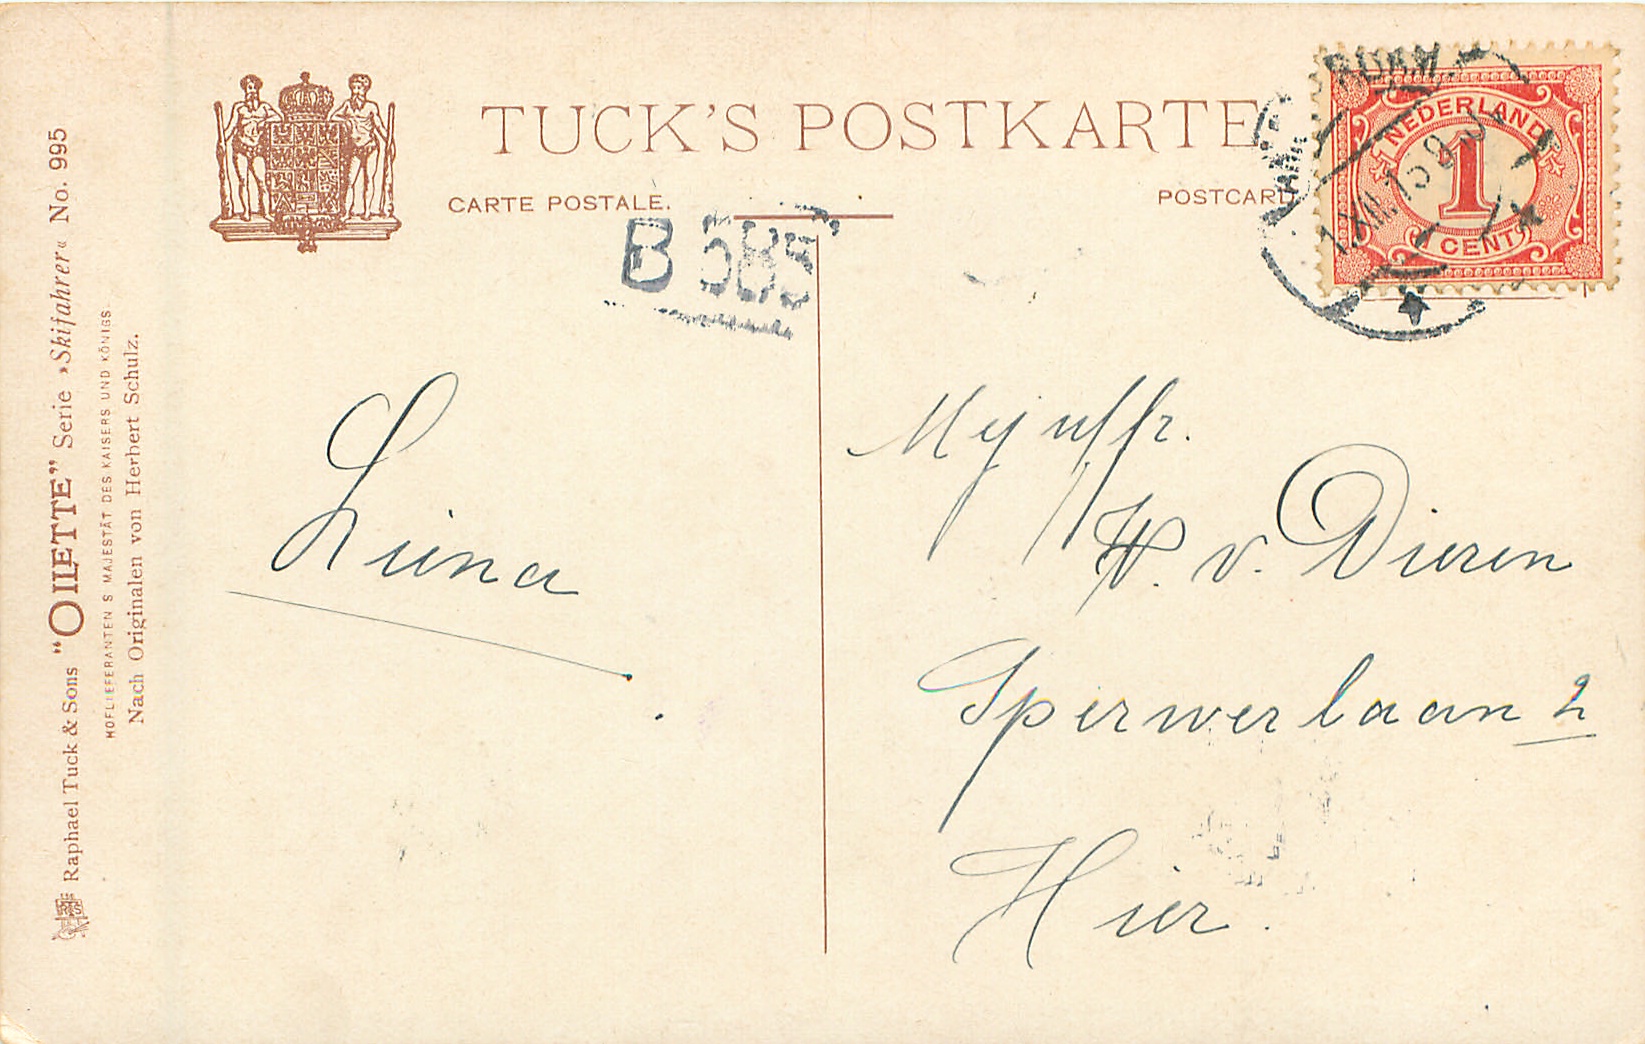 TUCK'S POSTKARTE
CARTE POSTALE.
POSTCARD
NEDERLAND
1
CENT
Mejuffr.
W. v. Dieren
Sperwerlaan 2
Hier.
Raphael Tuck & Sons "OILETTE" Serie »Skifahrer« No. 995
HOFLIEFERANTEN S MAJESTÄT DES KAISERS UND KÖNIGS
Nach Originalen von Herbert Schulz.